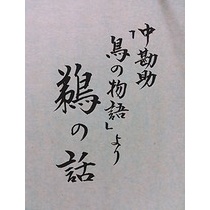 中勘助
「鳥の物語」より
鵜の話